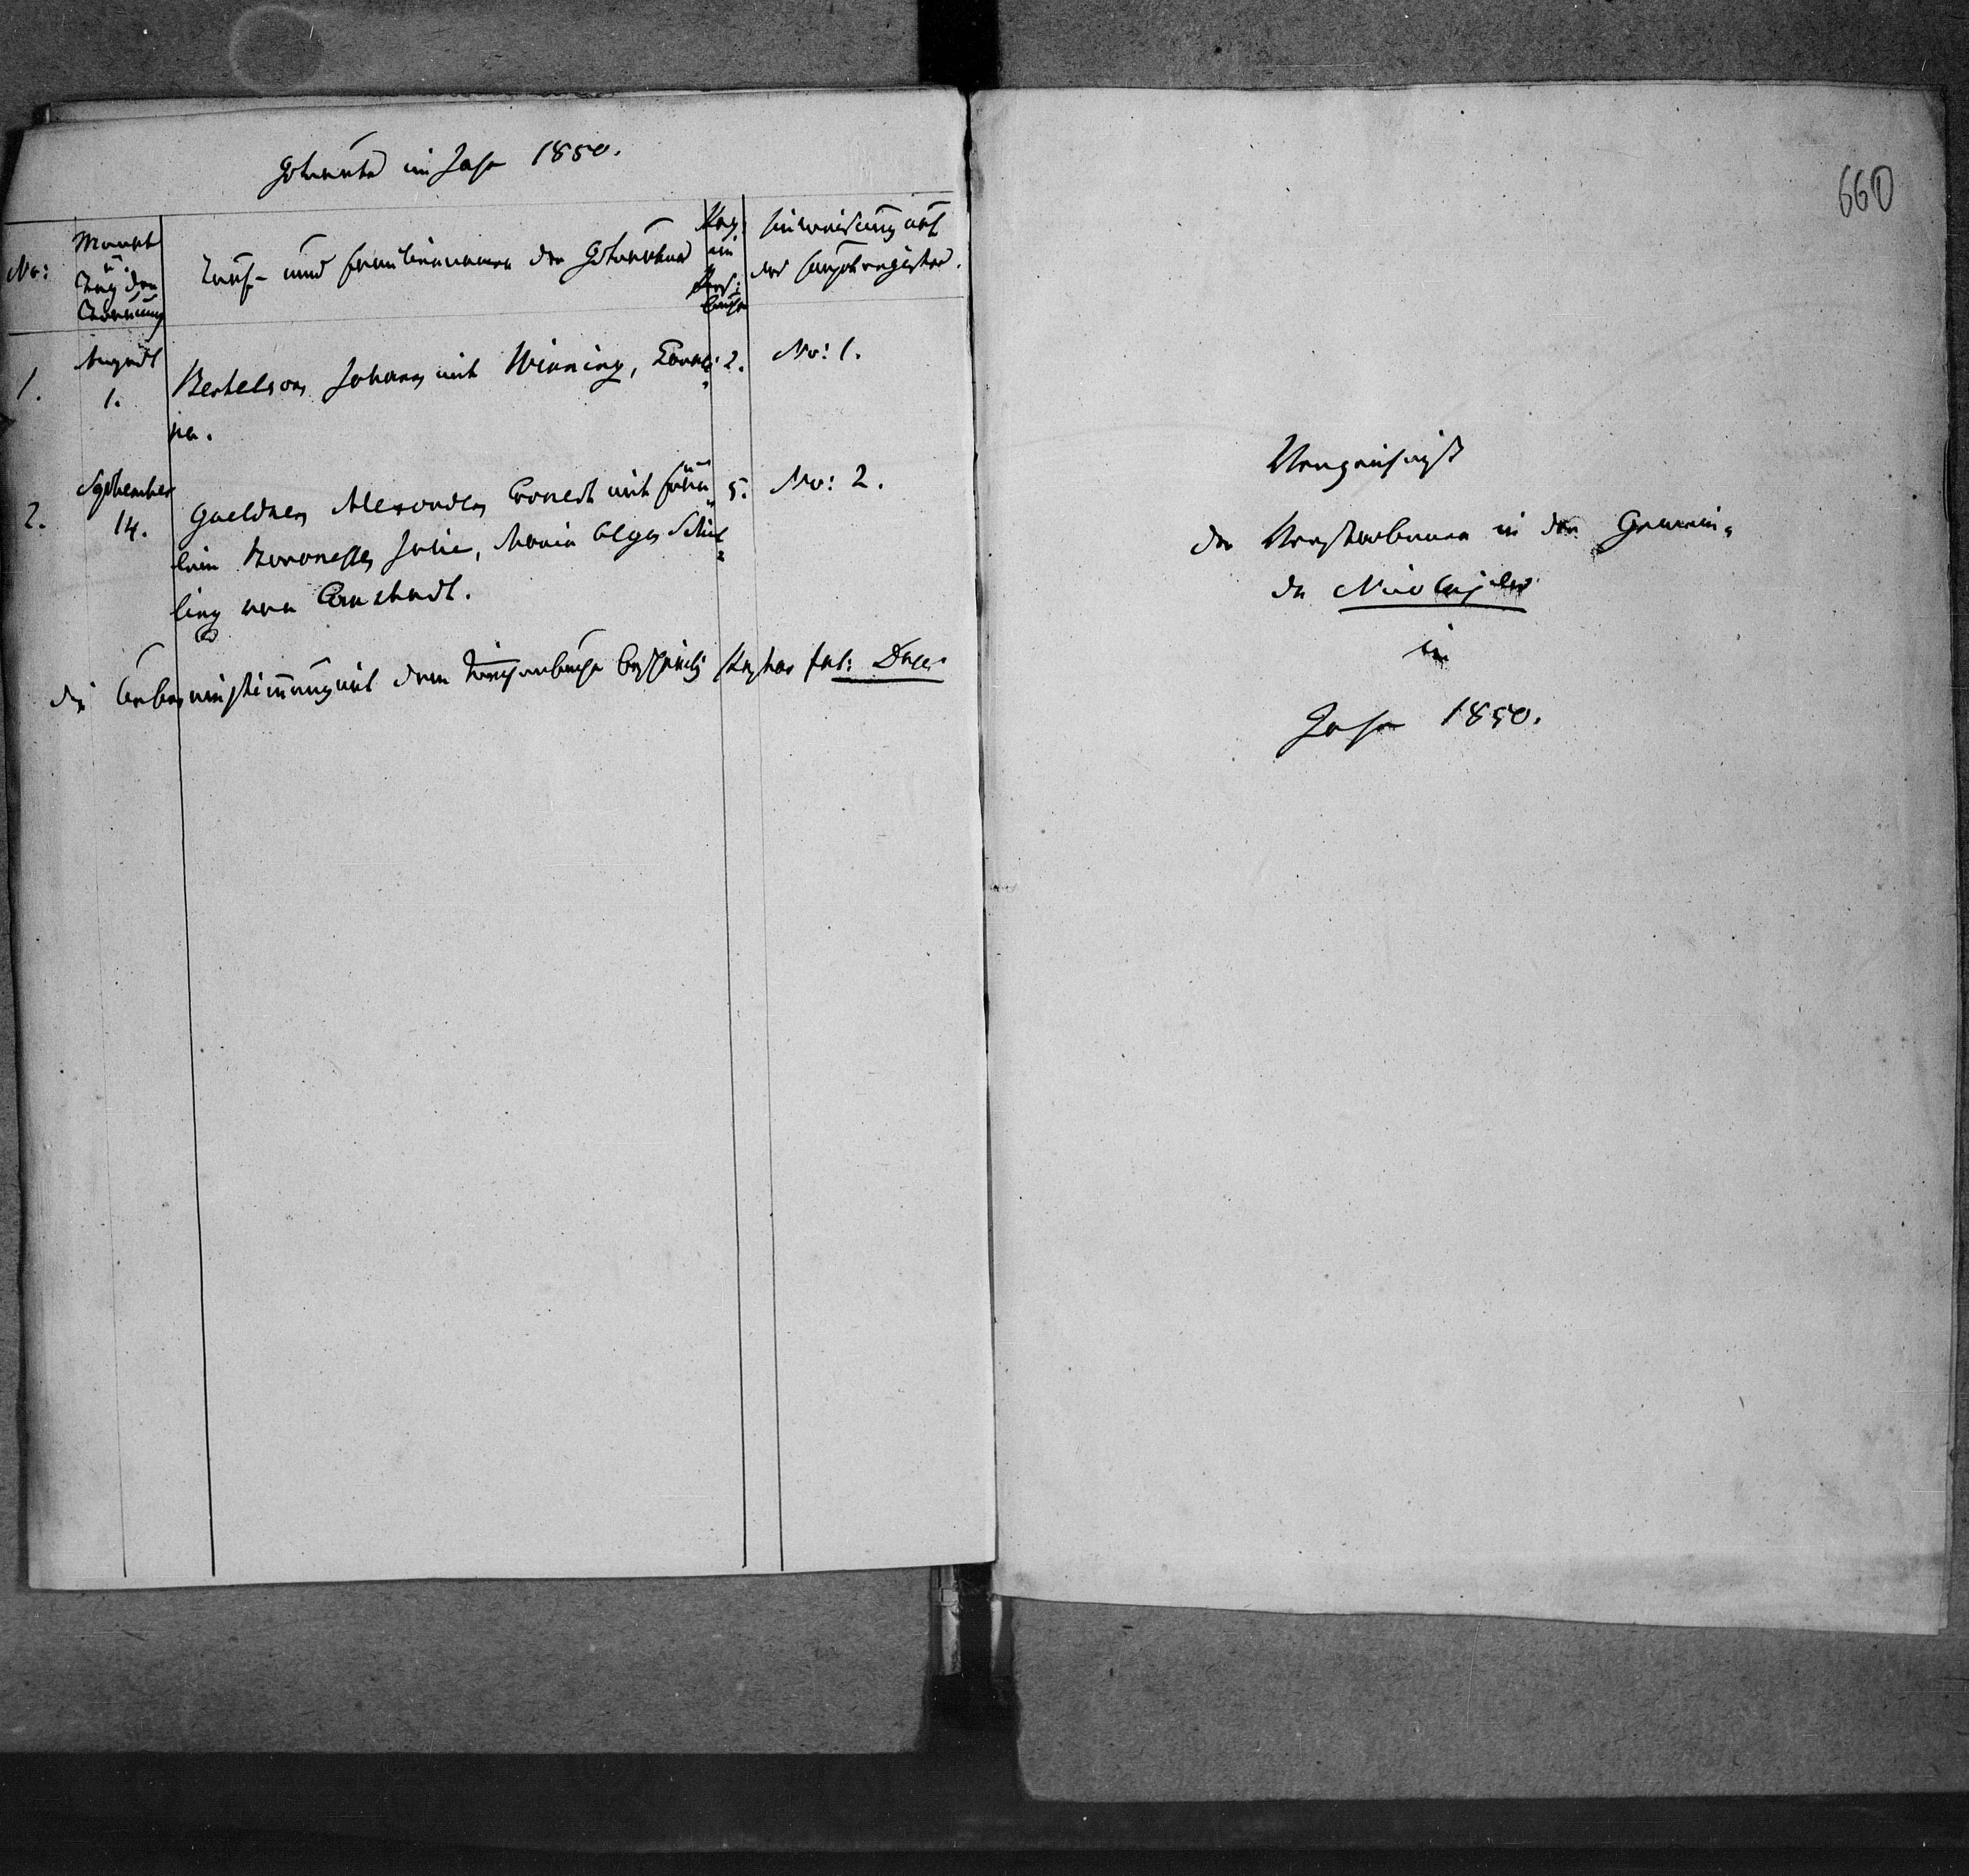 Getraute im Jahr 1850.
No:
Monat
u.
Tag der
Trauung
Tauf- und Familiennamen der Getrauten
Pag:
im
Kirch:
buche
Hinweisung auf
das Hauptregister.
1.
August
1.
Bertelson Johann mit Winning,
na.
2.
No: 1.
2.
September
14.
Gueldner Alexander Ernest mit Fräu
lein Baronesse Julie, Maria Olga Schil
ling von Canstadt.
5.
No: 2.
Die Uebereinstimmung mit dem Kirchenbuche bescheinigt Pastor
660
Verzeichniß
der Verstorbenen in der Gemein-
de Nicolajew
im
Jahr 1850.